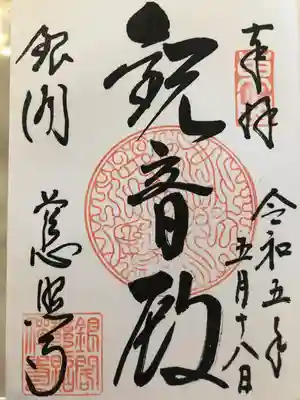 奉拝
令和五年
五月十八日
観音殿
銀閣
慈照寺
銀閣慈照寺